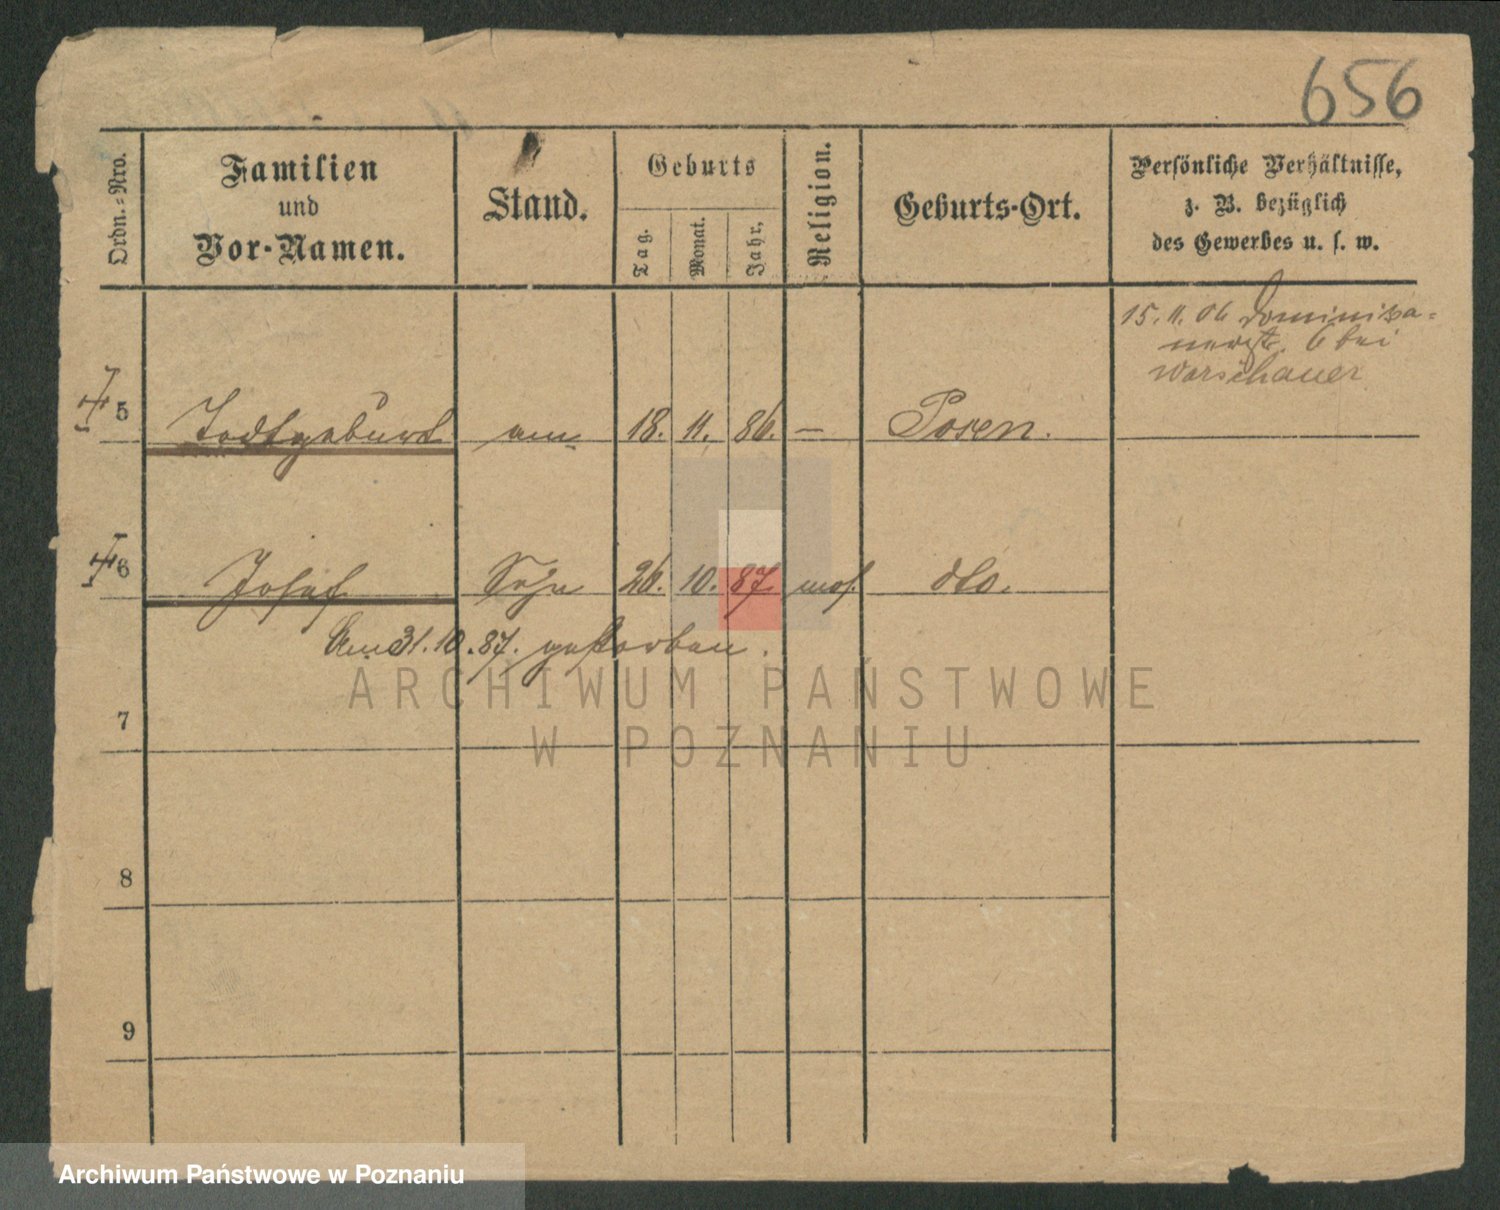 656
Ordn.-Nro.
Familien
und
Vor-Namen.
Stand.
Geburts
Tag.
Monat.
Jahr.
Religion.
Geburts-Ort.
Persönliche Verhältnisse,
z. B. bezüglich
des Gewerbes u. s. w.
15. 11. 06 Dominika-
nerstr. 6 bei
Warschauer
5 Todtgeburt am 18. 11. 86. — Posen.
6 Josef Sohn 26. 10. 87. mos. dto.
Am 31. 10. 87. gestorben.
ARCHIWUM PAŃSTWOWE
W POZNANIU
7
8
9
Archiwum Państwowe w Poznaniu